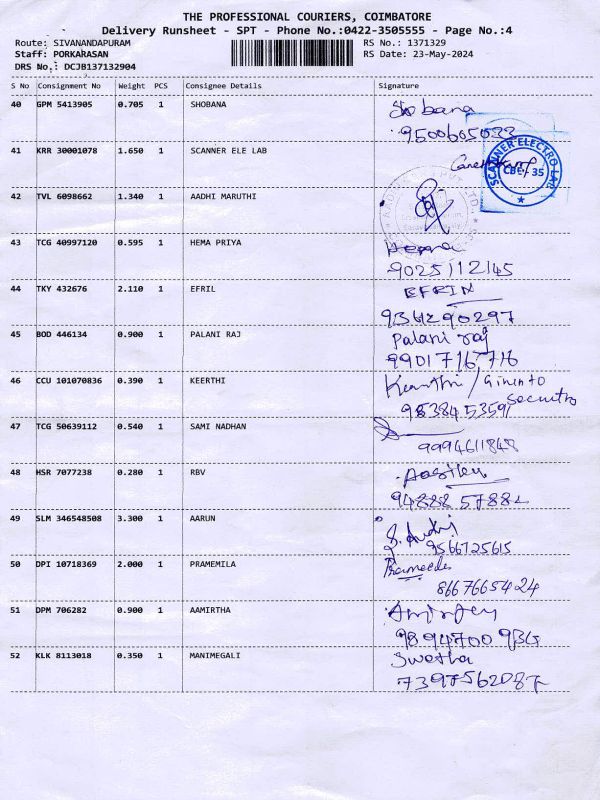 THE PROFESSIONAL COURIERS, COIMBATORE
Delivery Runsheet - SPT - Phone No.:0422-3505555 - Page No.:4
Route: SIVANANDAPURAM RS No.: 1371329
Staff: PORKARASAN RS Date: 23-May-2024
DRS No.: DCJB137132904
S No Consignment No Weight PCS Consignee Details Signature
40 GPM 5413905 0.705 1 SHOBANA Shobana
9500605033
41 KRR 30001078 1.650 1 SCANNER ELE LAB
SCANNER ELECTRO LAB
CBE - 35
42 TVL 6098662 1.340 1 AADHI MARUTHI
43 TCG 40997120 0.595 1 HEMA PRIYA Hema
9025112145
44 TKY 432676 2.110 1 EFRIL EFRIN
9361290297
45 BOD 446134 0.900 1 PALANI RAJ Palani raj
99017167716
46 CCU 101070836 0.390 1 KEERTHI Keerthi /
Security
9838453591
47 TCG 50639112 0.540 1 SAMI NADHAN
9994611848
48 HSR 7077238 0.280 1 RBV
94888 57882
49 SLM 346548508 3.300 1 AARUN
9566725615
50 DPI 10718369 2.000 1 PRAMEMILA
8667665424
51 DPM 706282 0.900 1 AAMIRTHA
52 KLK 8113018 0.350 1 MANIMEGALI Swetha
7397562087